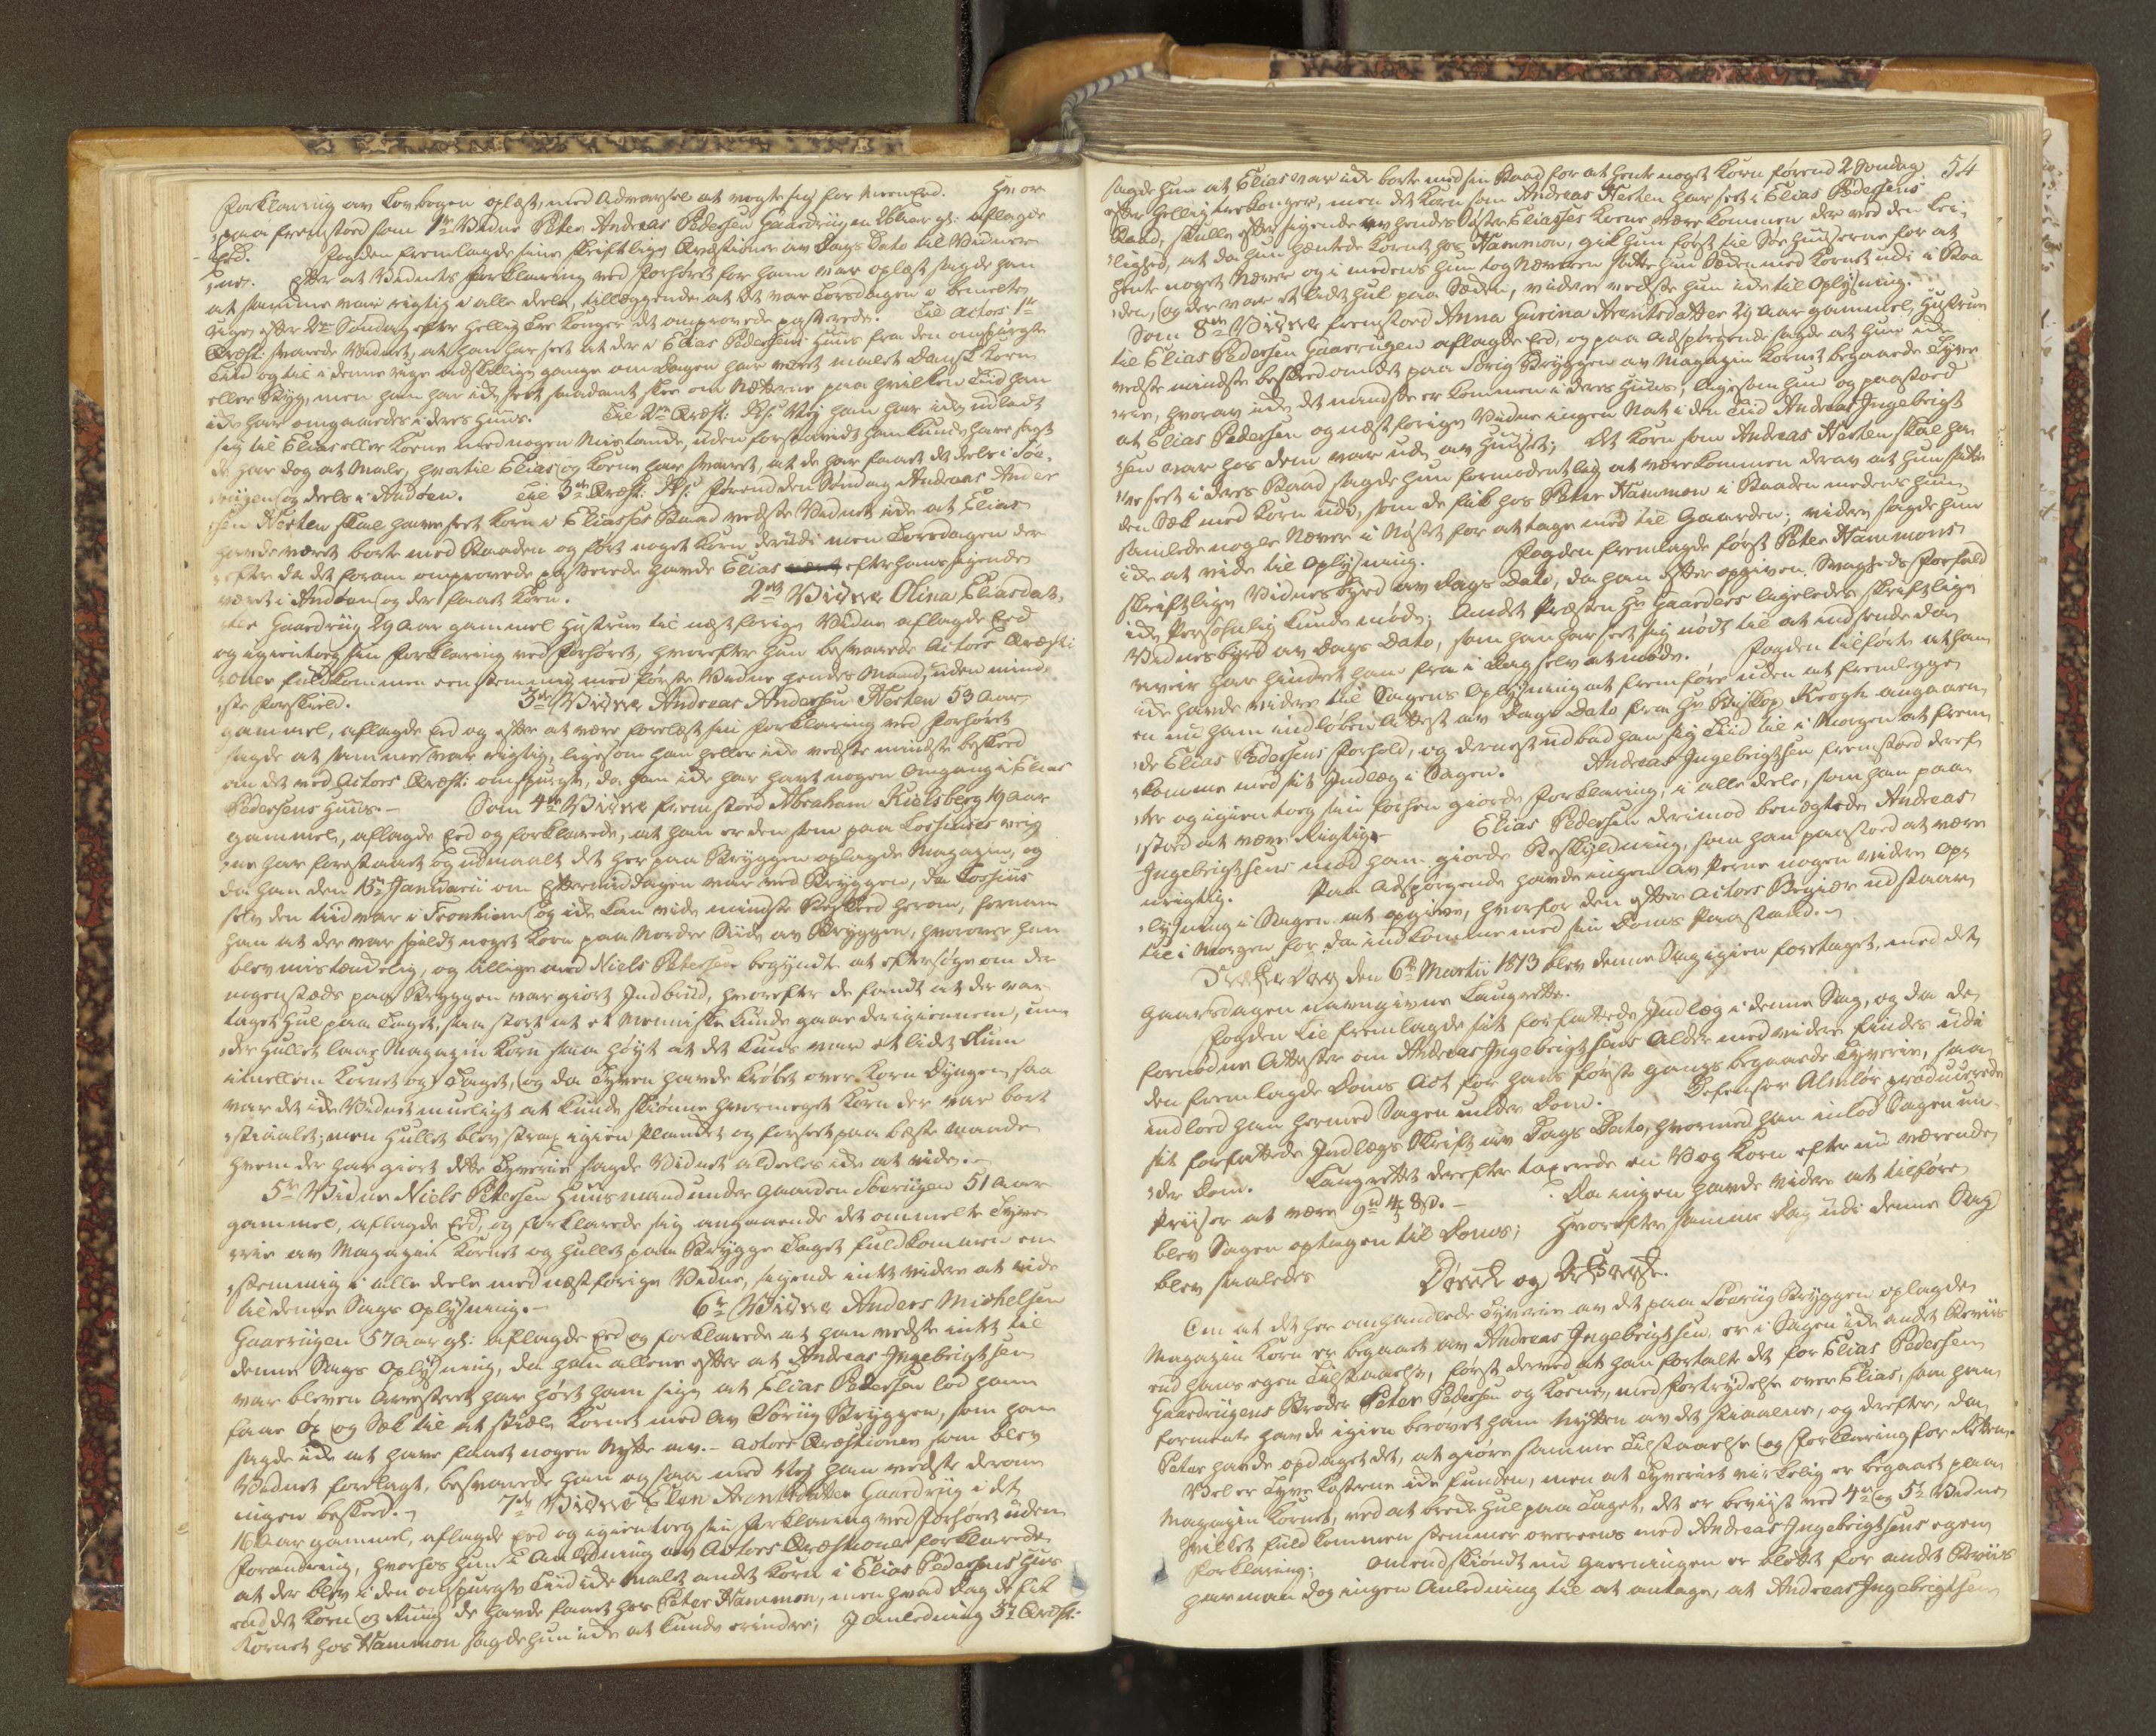 Forklaring av Lovbogen oplæst, med Advarsel at vogte sig for Meeneed. Hvor
paa fremstoed som 1te Vidne Peter Andreas Pedersen Gaardrügen 26 Aar gl: aflagde
Eed. Fogden fremlagde sine skriftlige Qvæstioner av Dags Dato til Vidner-
ne. Efter at Vidnets Forklaring ved Forhøret for ham var oplæst sagde han
at samme var rigtig i alle deele, tillæggende at det var Torsdagen i bemelte
Uge efter 2de Søndag efter Hellig Tre Konger det omprovede passerede. Til Actors 1te
Qvæst: svarede Vidnet, at han har seet at der i Elias Pedersens Huus fra den omspurgte
Tiid og til i denne Uge adskillige gange om Dagen har været malet Dansk Korn
eller Bÿg, men han har ide seet saadant skee om Nætterne paa hvilken Tiid han
ide har omgaaedes i deres Huus. Til 2den Qvæst: Rs: Nej han har ide udladt
sig til Elias eller Kone med nogen Mistanke, uden forsaavidt han kunde have sagt
de har dog at Male, hvortil Elias og Kone har svaret, at de har faaet det deels i Søe-
rügen og deels i Andøen. Til 3die Qvæst: Rs: Førend den Søndag Andreas Ander
sen Nesten skal have seet Korn i Eliasses Baad vedste Vidnet ide at Elias
havde været borte med Baaden og ført noget Korn derüdi men Torsdagen der
efter da det foran omprovede passerede havde Elias efter hans sigende
været i Andøen og der faaet Korn. 2det Vidne Olina Eliasdat-
ter Gaardrüg 29 Aar gammel Hustrue til næstforige Vidne aflagde Eed
og igientoeg sin Forklaring ved Forhøret, hvorefter hun besvarede Actors Qvæsti
oner fuldkommen eenstemmig med første Vidne hendes Mand, uden mind-
ste Forskiel. 3die Vidne Andreas Andersen Nesten 53 Aar
gammel, aflagde Eed og efter at være forelæst sin Forklaring ved Forhøret
sagde at samme var rigtig, ligesom han heller ide vedste mindste besked
om det ved Actors Qvæst: omspurgte, da han ide har havt nogen Omgang i Elias
Pedersens Huus.- Som 4de Vidne fremstoed Abraham Kielsberg 19 Aar
gammel, aflagde Eed og forklarede, at han er den som paa Lossiuses veig
ne har forestaaet og udmaalt det her paa Brÿggen oplagde Magazin, og
da han den 15de Januarii om Eftermiddagen var ved Brÿggen, da Lossius
selv den tiid var i Tronhiem og ide kan vide mindste Besked herom, fornam
han at der var spildt noget Korn paa Nordre Siide av Brÿggen, hvorover han
blev mistændelig, og tillige med Niels Petersen begÿndte at eftersøge om der
nogenstæds paa Brÿggen var giort Indbrud, hvorefter de fandt at der var
taget Hul paa Taget, saa stort at et Menniske kunde gaae derigiennem, un
der Hullet laae Magazin Korn saa høÿt at det kuns var et lidet Rum
imellem Kornet og Taget, og da Tÿven havde krøbet over Korn Dÿngen saa
var det ide Vidnet mueligt at kunde skiønne hvormeget Korn der var bort
stiaalet; men Hullet blev strax igien plandet og forseet paa beste maade
hvem der har giort dette Tÿverie sagde Vidnet aldeles ide at vide.-
5te Vidne Niels Petersen Huusmand under Gaarden Søerügen 51 Aar
gammel, aflagde Eed, og forklarede sig angaaende det ommelte Tÿve
rie av Magazin Kornet og Hullet paa Brÿgge Taget fuldkommen een
stemmig i alle deele med næstforige Vidne, sigende intet videre at vide
til denne Sags Oplÿsning.- 6te Vidne Anders Michelsen
Gaarrügen 57 Aar gl: aflagde Eed og forklarede at han vedste intet til
denne Sags Oplÿsning, da han allene efter at Andreas Ingebrigtsen
var bleven Arresteret har hørt ham sige at Elias Pedersen lod ham
faae Øx og Sæk til at stiæle Kornet med av Sørüg Brÿggen, som han
sagde ide at have havt nogen Nÿtte av.- Actors Qvæstioner som blev
Vidnet forelagt, besvarede han ogsaa med Nej han vedste derom
ingen besked. 7de Vidne Elen Arentsdatter Gaardrüg i det
16 Aar gammel, aflagde Eed og igientoeg sin Forklaring ved Forhøret uden
Forandring, hvorhos hun i Anledning av Actors Qvæstioner forklarede
at der blev i den omspurgte Tiid ide malet andet Korn i Elias Pedersens Hus
end det Korn og Rüug de havde faaet hos Peter Hammon, men hvad Dag de fik
Kornet hos Hammon sagde hun ide at kunde erindre; I Anledning 3die Qvæst:
54
sagde hun at Elias var ide borte med sin Baad for at hente noget Korn førend 2 Søndag
efter Hellig trekonger, men det Korn som Andreas Nesten har seet i Elias Pedersens
Baad, skulle efter sigende av hendes Søster Eliasses Kone være kommen der ved den Lei-
lighed, at da hun hæntede Kornet hos Hammon, gik hun først til Søe Huuserne for at
hente noget Næver og imedens hun tog Næveren satte hun Sæken med Kornet udi i Baa
den, og der var et lidet hul paa Sæken, videre vedste hun ide til Oplÿsning.
Som 8de Vidne fremstoed Anna Gurina Arentsdatter 29 Aar gammel, Hustrue
til Elias Pedersen Gaarrügen aflagde Eed, og paa Adspørgende sagde at hun ide
vedste mindste besked om det paa Sørig Brÿggen av Magazin Kornet begaaede Tÿve
rie, hvorav ide det mindste er kommen i deres Huus, ligesom hun og paastoed
at Elias Pedersen og næstforige Vidne ingen Nat i den Tiid Andreas Ingebrigt
sen var hos dem var ude av Huuset; Det Korn som Andreas Nesten skal ha-
ve seet i deres Baad sagde hun formodentlig at være kommen derav at hun satte
den Sæk med Korn udi, som de fik hos Peter Hammon i Baaden medens hun
samlede nogle Næver i Nøstet for at tage med til Gaarden; videre sagde hun
ide at vide til Oplÿsning. Fogden fremlagde først Peter Hammons
skriftlige Vidnesbÿrd av Dags Dato, da han efter opgiven Svagheds Forfald
ide Persohnlig kunde møde; Andet Præsten Hr Gaarders ligeledes skriftlige
Vidnesbÿrd av Dags Dato, som han har seet sig nødt til at indsende da
veir har hindret ham fra i Dag selv at møde. Fogden tilførte at han
ide havde videre til Sagens Oplÿsning at fremføre uden at fremlegge
en nu ham indløben Attest av Dags Dato fra Hr Biskop Krogh angaaen
de Elias Pedersens Forhold, og dernest udbad han sig Tiid til i Morgen at frem
komme med sit Indlæg i Sagen. Andreas Ingebrigtsen fremstoed deref
ter og igientoeg sin forhen giorde Forklaring, i alle deele, som han paa
stoed at være Rigtig.- Elias Pedersen derimod benegtede Andreas
Ingebrigtsens mod ham giorde Beskÿldning, som han paastoed at være
urigtig. Paa Adspørgende havde ingen av Parterne nogen videre Op-
lÿsning i Sagen at opgive, hvorfor den efter Actors Begiær udstaar
til i Morgen for da indkomme med sin Doms Paastand.-
Derefter den 6te Martii 1813 blev denne Sag igien foretaget, med det
Gaarsdagen navngivne Laugrette.
Fogden til fremlagde sit forfattede Indlæg i denne Sag, og da de
fornødne Attester om Andreas Ingebrigtsens Alder med videre findes udi
den fremlagde Doms Act for hans første gangs begaaede Tÿverie, saa
indloed han hermed Sagen under Dom. Defensor Almlør producerede
sit forfattede Indlægs Skrift av Dags Dato, hvormed han inlod Sagen un-
der Dom. Laugrettet derefter taxerede en Vog Korn efter nu værende
Priiser at være 9rd 4 ₻ 8 s.- Da ingen havde videre at tilføre
blev Sagen optagen til Doms; Hvorefter samme Dag udi denne Sag
blev saaledes Dømt og Afsagt.
Om at det her omhandlede Tÿverie av det paa Søerüg Brÿggen oplagde
Magazin Korn er begaaet av Andreas Ingebrigtsen er i Sagen ide andet Beviis
end hans egen Tilstaaelse, først derved at han fortalte det for Elias Pedersen
Gaardrügens Broder Peter Pedersen og Kone, med fortrÿdelse over Elias, som han
formente havde igien berøvet ham Nÿtten av det stiaalne, og derefter, da
Peter havde opdaget det, at giøre samme Tilstaaelse og Forklaring for Retten.
Vel er Tÿve Kosterne ide funden, men at Tÿveriet virkelig er begaaet paa
Magazin Kornet, ved at brede Hul paa Taget, det er beviist ved 4de og 5te Vidne
hvilket fuldkommen stemmer overeens med Andreas Ingebrigtsens egen
Forklaring; Omendskiøndt nu Gierningen er blottet for andet Beviis
har man dog ingen Anledning til at antage, at Andreas Ingebrigtsen